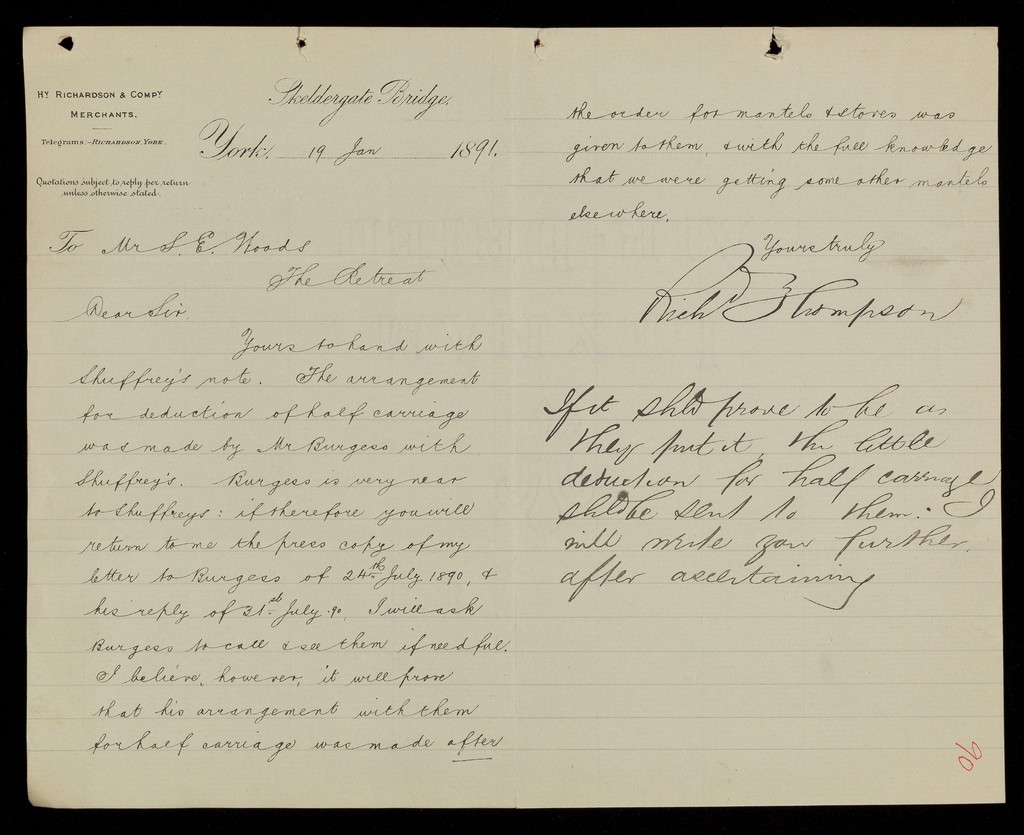 Hy RICHARDSON & COMPY
MERCHANTS.
Telegrams:-RICHARDSON, YORK.
Quotations subject to reply per return
unless otherwise stated.
Skeldergate Bridge,
York. 19 Jan 1891.
To Mr S. E. Woods
The Retreat
Dear Sir.
Yours to hand with
Shuffrey's note. The arrangement
for deduction of half carriage
was made by Mr Burgess with
Shuffrey's. Burgess is very near
to Shuffreys: if therefore you will
return to me the press copy of my
letter to Burgess of 24th July 1890, &
his reply of 31st July 90, I will ask
Burgess to call & see them if needful.
I believe, however, it will prove
that his arrangement with them
for half carriage was made after
the order for mantels & stoves was
given to them, & with the full knowledge
that we were getting some other mantels
elsewhere.
Yours truly
Richd Thompson
If it shld prove to be as
they put it, the little
deduction for half carriage
shld be sent to them. I
will write you further
after ascertaining
90